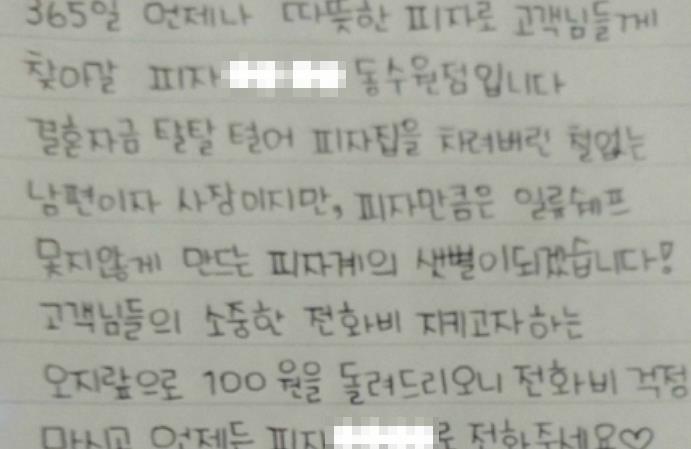 365일 언제나 따뜻한 피자로 고객님들게
찾아갈 피자 동수원점입니다
결혼자금 탈탈 털어 피자집을 차려버린 철없는
남편이자 사장이지만, 피자만큼은 일류쉐프
못지않게 만드는 피자계의 샛별이되겠습니다!
고객님들의 소중한 전화비 지키고자하는
오지랖으로 100원을 돌려드리오니 전화비 걱정
마시고 언제든 피자 로 전화주세요♡